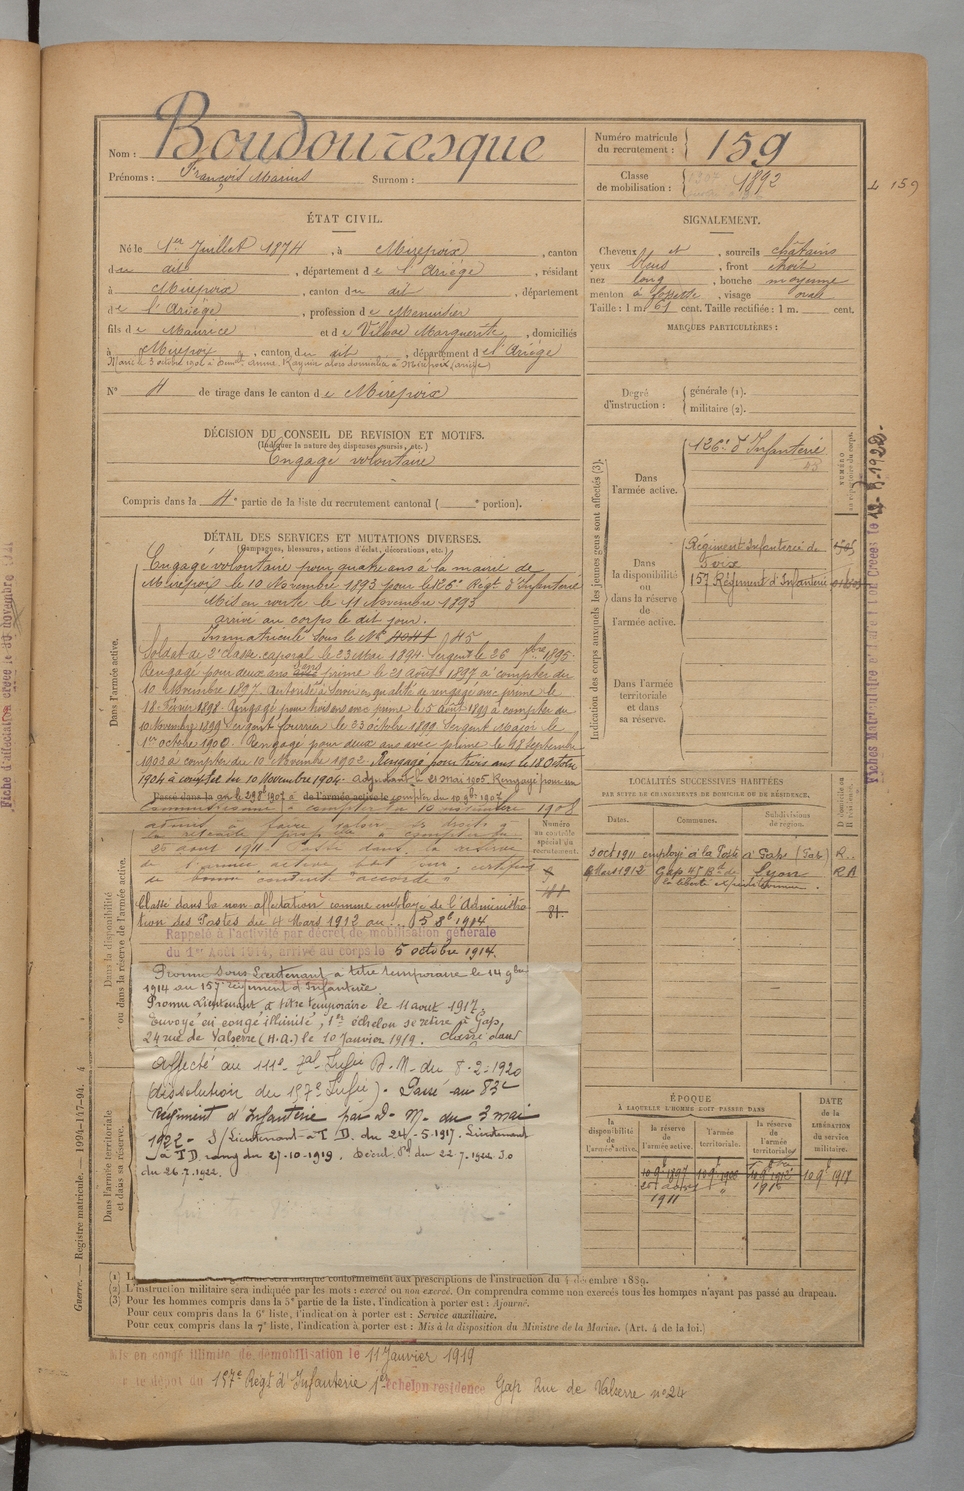 Nom : Boudouresque
Prénoms : François Marius Surnom :
Numéro matricule du recrutement : 159
Classe de mobilisation : 1892
159
ÉTAT CIVIL.
Né le 1er Juillet 1874, à Mirepoix, canton
du dit, département de l'Ariège, résidant
à Mirepoix, canton du dit, département
de l'Ariège, profession de Menuisier
fils de Maurice et de Vilbae Marguerite, domiciliés
à Mirepoix, canton du dit, département de l'Ariège
N° 4 de tirage dans le canton de Mirepoix
SIGNALEMENT.
Cheveux et, sourcils châtains
yeux bleus, front étroit
nez long, bouche moyenne
menton à fossette, visage ovale
Taille : 1 m. 61 cent. Taille rectifiée : 1 m. cent.
MARQUES PARTICULIÈRES :
Degré d'instruction : générale (1).
militaire (2).
DÉCISION DU CONSEIL DE REVISION ET MOTIFS.
(Indiquer la nature des dispenses, sursis, etc.)
Engagé volontaire
Compris dans la 4e partie de la liste du recrutement cantonal ( e portion).
DÉTAIL DES SERVICES ET MUTATIONS DIVERSES.
(Campagnes, blessures, actions d'éclat, décorations, etc.)
Dans l'armée active.
Engagé volontaire pour quatre ans à la mairie de
Mirepoix le 10 Novembre 1893 pour le 126e Régt d'Infanterie
Mis en route le 11 Novembre 1893
arrivé au corps le dit jour.
Immatriculé sous le No 145
Soldat de 2e classe, caporal le 23 Mai 1894. Sergent le 26 7bre 1895.
Rengagé pour deux ans sans prime le 21 août 1897 à compter du
10 Novembre 1897. Autorisé à servir en qualité de rengagé avec prime le
18 Février 1898. Rengagé pour trois ans avec prime le 5 août 1899 à compter du
10 Novembre 1899. Sergent fourrier le 23 octobre 1899. Sergent Major le
1er octobre 1900. Rengagé pour deux ans avec prime le 18 Septembre
à compter du 10 Novembre 1902. Rengagé pour trois ans le 18 Octobre
1904 à compter du 10 Novembre 1904. Adjudant le 21 mai 1905. Rengagé pour un
an le 29 8bre 1907 à compter du 10 9bre 1907
à compter du 10 novembre 1908
admis à faire valoir ses droits à
la retraite proportionnelle à compter du
25 août 1911. Passé dans la réserve
de l'armée active. certificat
de bonne conduite "accordé"
Classé dans la non affectation comme employé de l'Administra-
tion des Postes du 4 Mars 1912 au 5 8e 1914
Rappelé à l'activité par décret de mobilisation générale
du 1er Août 1914, arrivé au corps le 5 octobre 1914.
Promu Sous-Lieutenant à titre temporaire le 14 9bre
1914 au 157e régiment d'Infanterie.
Promu Lieutenant à titre temporaire le 11 aout 1917.
Envoyé en congé illimité, 1er échelon se retire à Gap,
24 rue de Valserre (H.A.) le 10 Janvier 1919. Classé dans
Affecté au 111e D.M. du 8.2.1920
(dissolution du 157e Infie). Passé au 83e
régiment d'Infanterie par D.M. du 3 mai
1922 - S/Lieutenant à T.D. du 24-5-1917. Lieutenant
à T.D. rang du 27-10-1919. du 22.7.1922 J.O
du 26.7.1922.
Dans la disponibilité ou dans la réserve de l'armée active.
Dans l'armée territoriale et dans sa réserve.
Numéro au contrôle spécial du recrutement.
Indication des corps auxquels les jeunes gens sont affectés (3).
Dans l'armée active. 126e d'Infanterie
Dans la disponibilité ou dans la réserve de l'armée active. Régiment Infanterie de Foix
157 Régiment d'Infanterie
Dans l'armée territoriale et dans sa réserve.
NUMÉRO au répertoire du corps.
LOCALITÉS SUCCESSIVES HABITÉES
PAR SUITE DE CHANGEMENTS DE DOMICILE OU DE RÉSIDENCE.
Dates. Communes. Subdivisions de région. D domicile ou R résidence.
3 oct 1911 employé à la Poste à Gap (Gap) R.
4 Mars 1912 Gap 45 Bd de la liberté Lyon RA
ÉPOQUE
À LAQUELLE L'HOMME DOIT PASSER DANS
la disponibilité de l'armée active. la réserve de l'armée active. l'armée territoriale. la réserve de l'armée territoriale.
DATE de la LIBÉRATION du service militaire.
10 9e 1897 10 9e 1908 10 9e 1917
25 août 1911
Guerre. — Registre matricule. — 1994-147-94. 4
conformément aux prescriptions de l'instruction du 4 décembre 1889.
(2) L'instruction militaire sera indiquée par les mots : exercé ou non exercé. On comprendra comme non exercés tous les hommes n'ayant pas passé au drapeau.
(3) Pour les hommes compris dans la 5e partie de la liste, l'indication à porter est : Ajourné.
Pour ceux compris dans la 6e liste, l'indication à porter est : Service auxiliaire.
Pour ceux compris dans la 7e liste, l'indication à porter est : Mis à la disposition du Ministre de la Marine. (Art. 4 de la loi.)
Mis en congé illimité de démobilisation le 11 Janvier 1919
le dépôt du 157e Régt d'Infanterie 1er échelon résidence Gap Rue de Valserre no 24